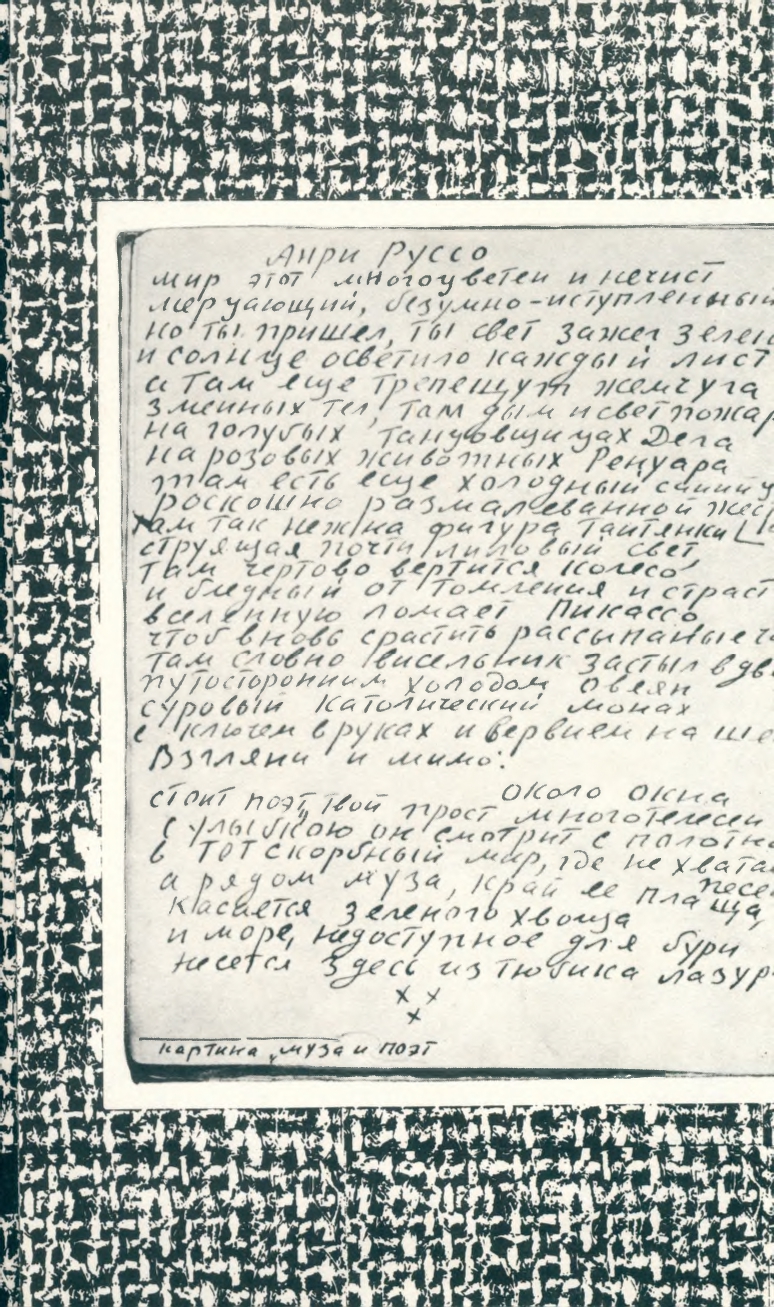 Анри Руссо
мир этот многоцветен и нечист
мерцающий, безумно-иступленный
но ты пришел, ты свет зажег зелен
и солнце осветило каждый лист
а там еще трепещут жемчуга
змеиных тел, там дым и свет пожар
на голубых танцовщицах Дега
на розовых животных Ренуара
там есть еще холодный синий
роскошно размалеванной жес
там так нежна фигура таитянки
струящая почти лиловый свет,
там чертово вертится колесо
и бледный от томления и страст
вселенную ломает Пикассо
чтоб вновь срастить рассыпаные
там словно висельник застыл в две
путосторонним холодом овеян
суровый католический монах
с ключем в руках и вервием на ше
Взгляни и мимо:
около окна
стоит поэт, твой прост многотелесен
с улыбкою он смотрит с полотна
в тот скорбный мир, где не хвата
песен
а рядом муза, край ее плаща,
касается зеленого хвоща
и море, недоступное для бури
несется здесь из тюбика лазур
х х
х
картина „муза и поэт